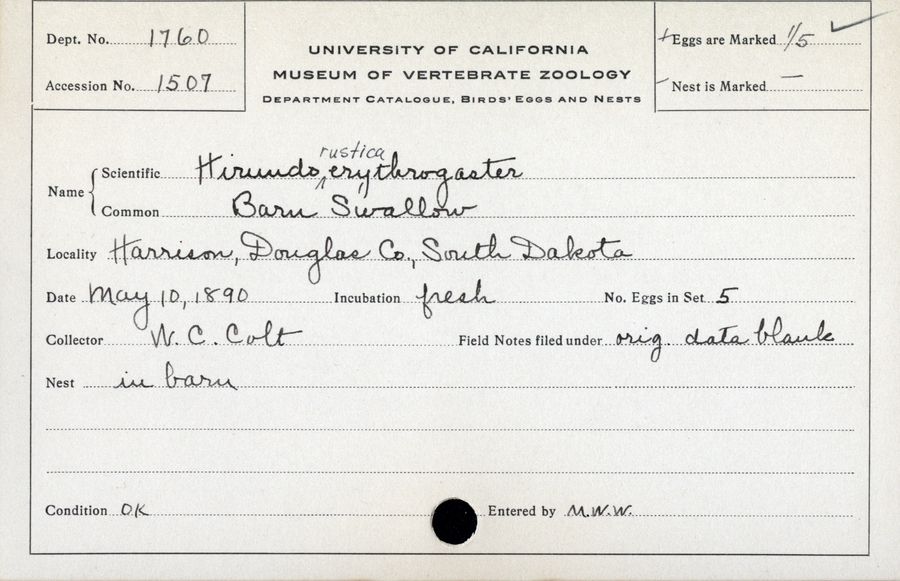 Dept. No. 1760
Accession No. 1507
UNIVERSITY OF CALIFORNIA
MUSEUM OF VERTEBRATE ZOOLOGY
DEPARTMENT CATALOGUE, BIRDS' EGGS AND NESTS
Eggs are Marked 1/5
Nest is Marked —
rustica
Name Scientific Hirundo erythrogaster
Common Barn Swallow
Locality Harrison, Douglas Co., South Dakota
Date May 10, 1890 Incubation fresh No. Eggs in Set 5
Collector W. C. Colt Field Notes filed under orig. data blank
Nest in barn
Condition OK Entered by M.W.W.